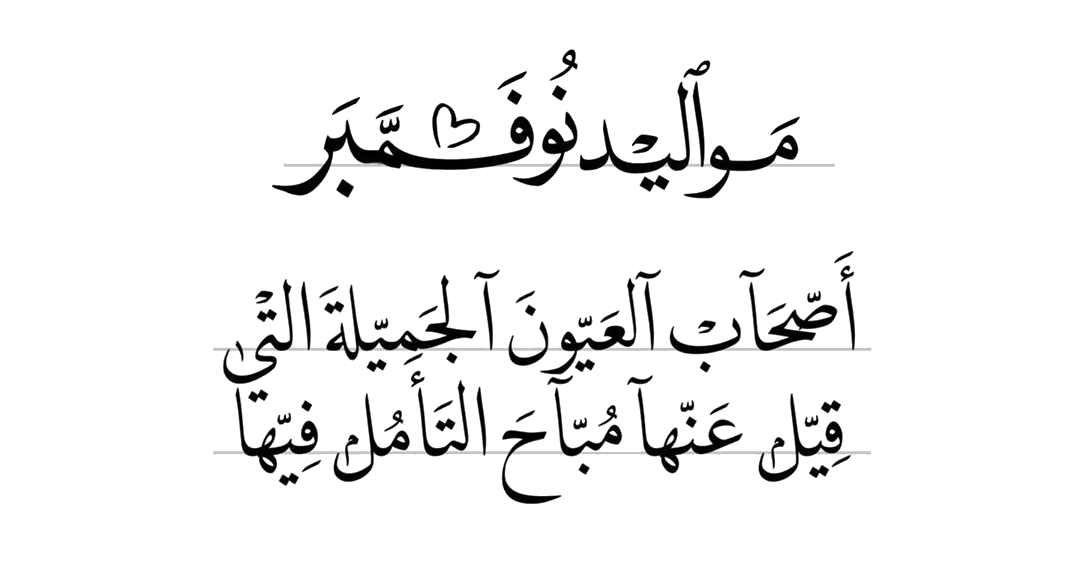 مَـوٱليْـدنُوفَـمَّبَر
أَصّحَآب ٱلعَيّونَ ٱلجَمِيّلةَ التىْ
قِيّل عَنّهآ مُبّآحَ التَأمُل فِيّها